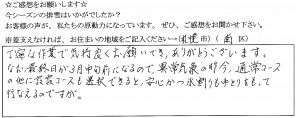 ☆ご感想をお願いします☆
今シーズンの排雪はいかがでしたか？
お客様の声が、私たちの原動力になっています。ぜひ、ご感想をお聞かせ下さい。
※差支えなければ、お住まいの地域をご記入ください→（札幌市）（南区）
丁寧な作業で気持良くお願いでき、ありがとうございます。
なお、最終日が3月中旬前になるので、異常気象の昨今、通常コース
の他に設定コースも選択できると、安心かつ水割りも中とりをもって
行なえるのですが。